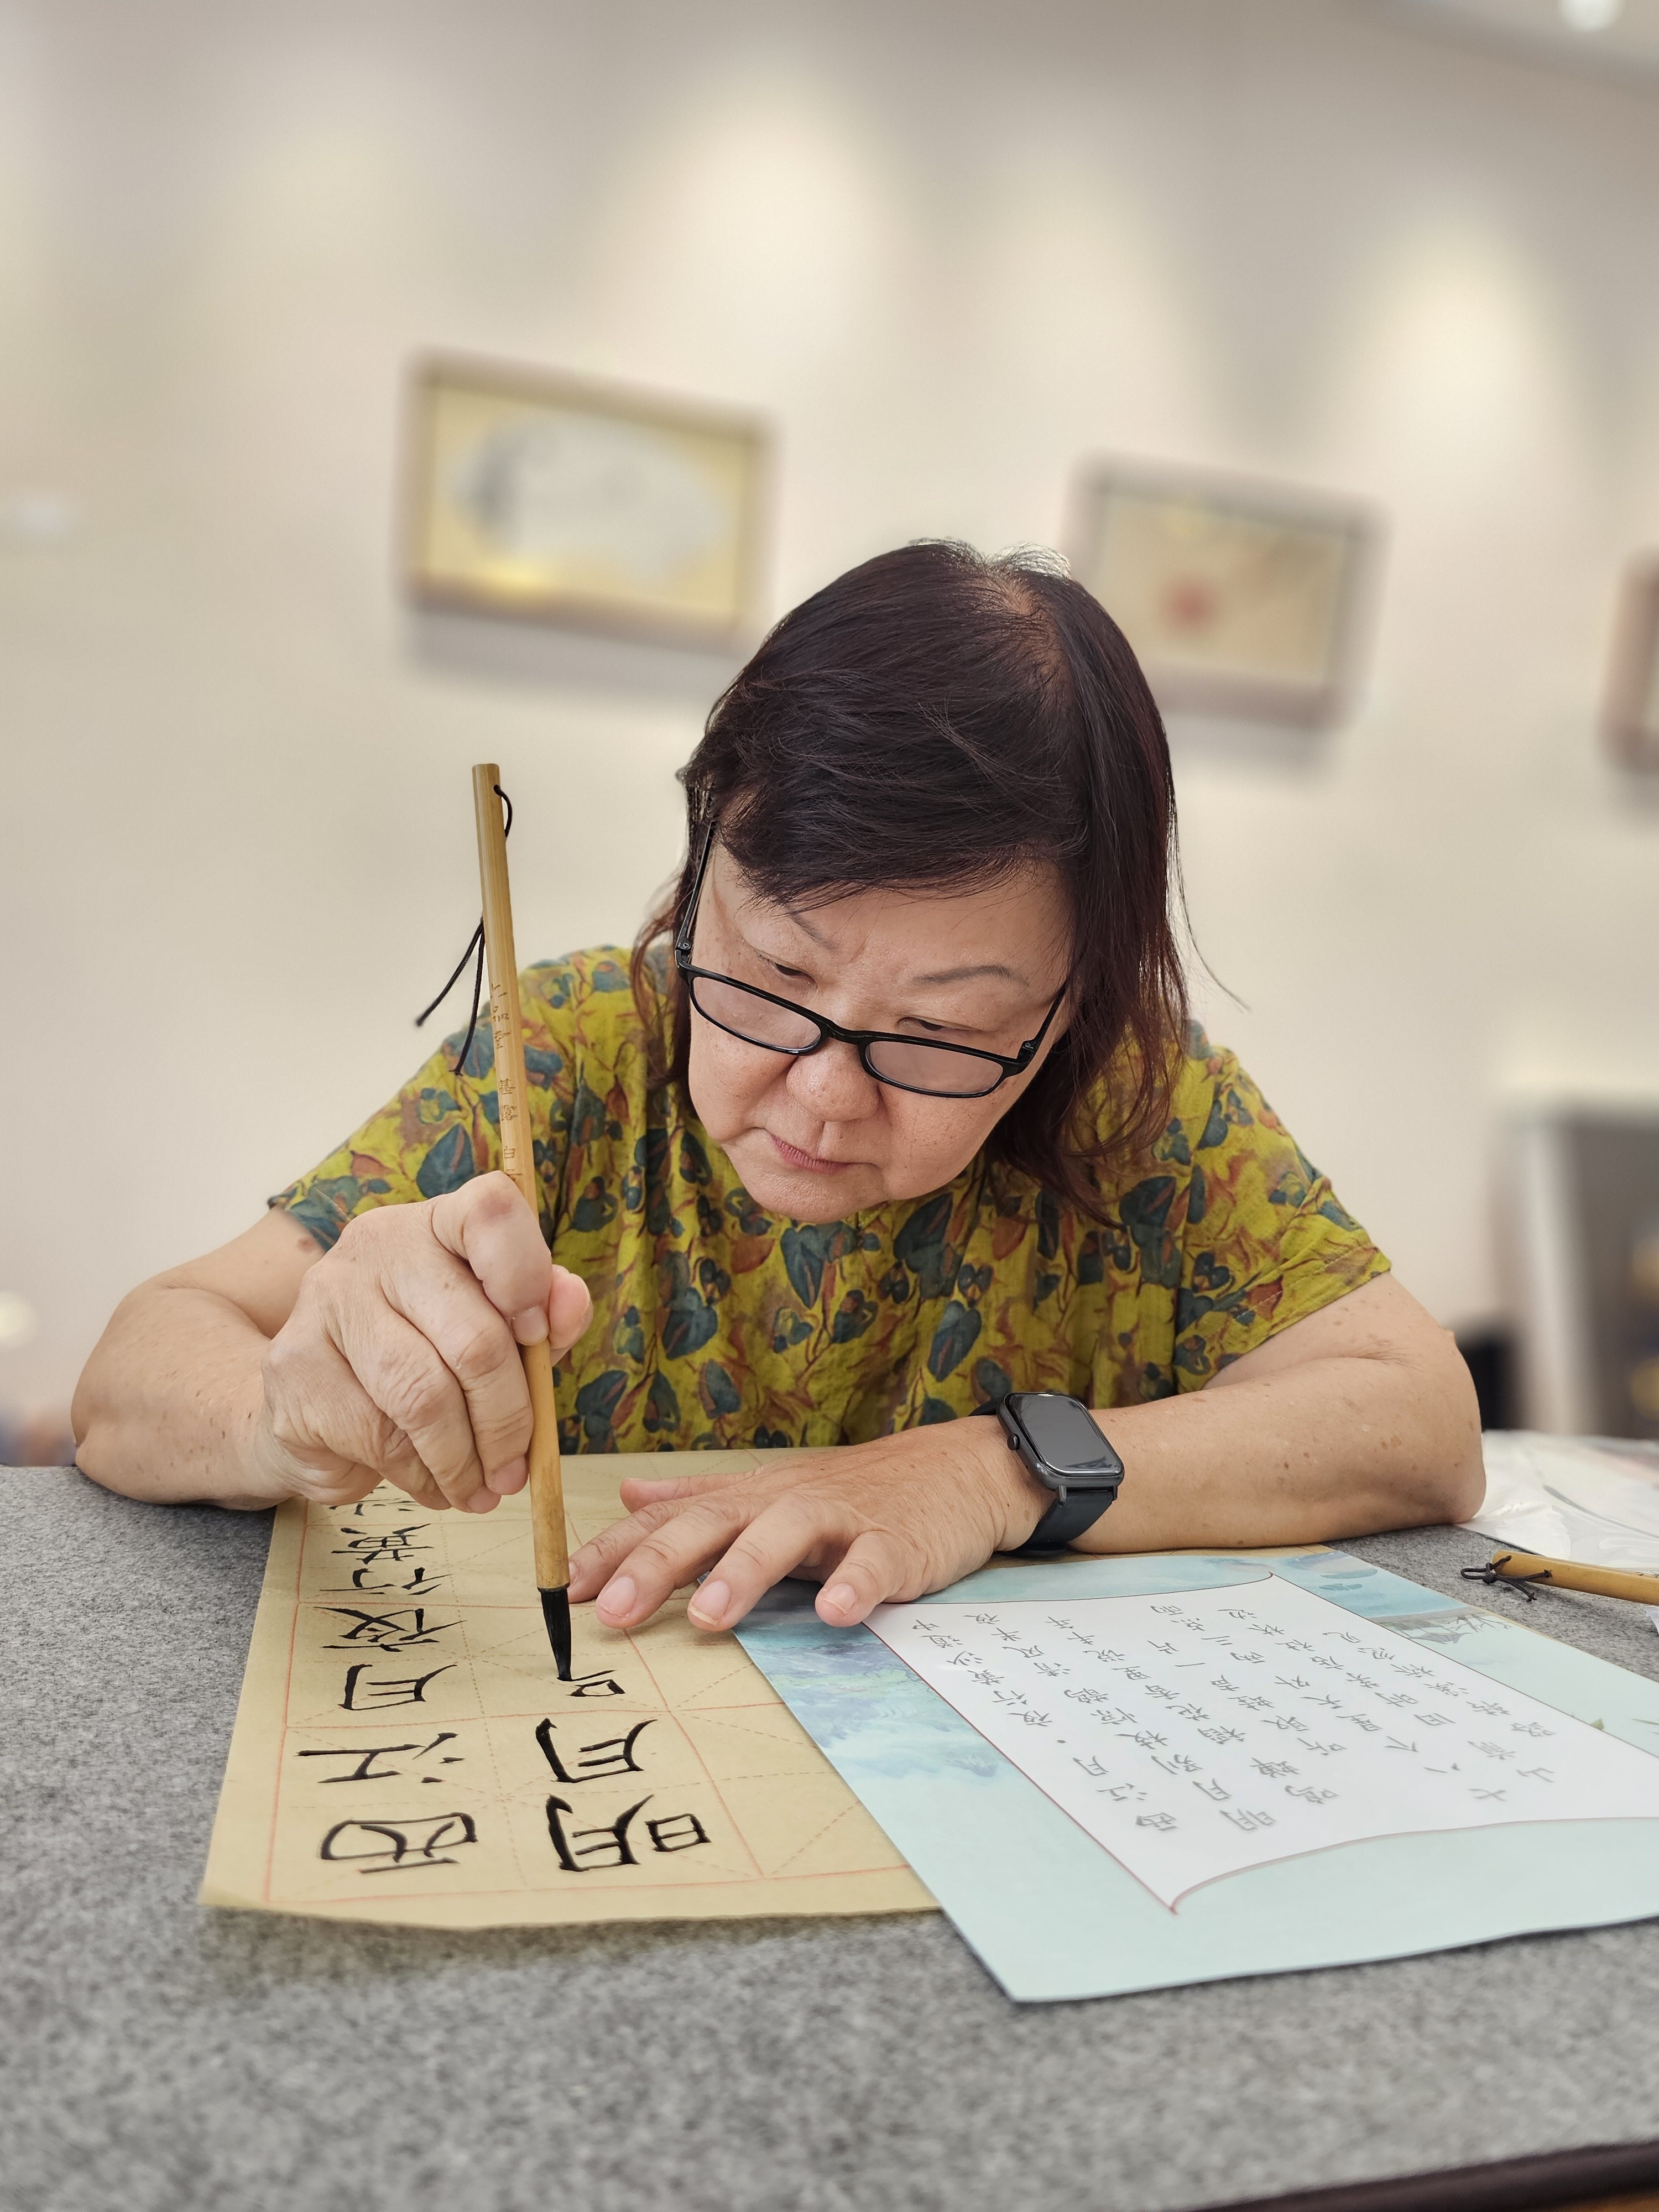 西江月夜行黄沙
明月
西江月·夜行黄沙道中
明月别枝惊鹊清风半夜
鸣蝉稻花香里说丰年
听取蛙声一片
七八个星天外两三点雨
山前旧时茅店社林边
路转溪桥忽见